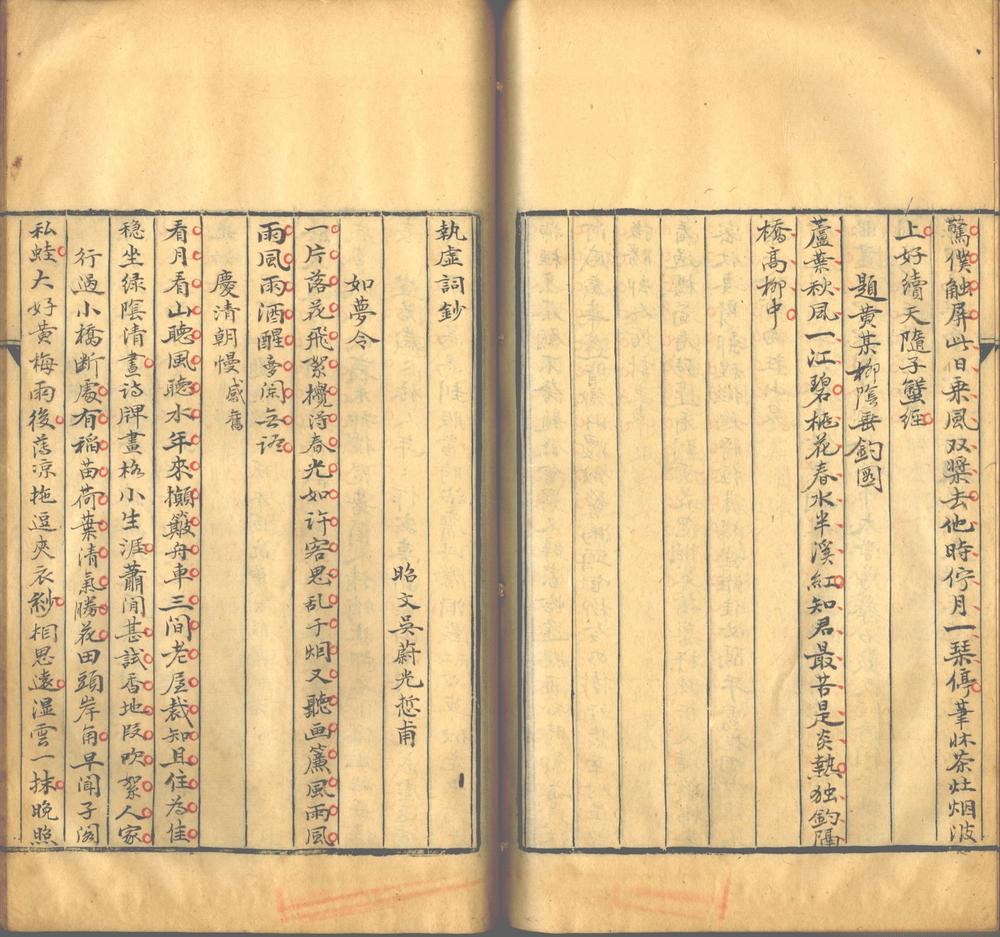 驚僕触屏此日乗風双槳去他時佇月一琴停筆牀茶灶烟波
上好續天隨子蟹經
題黄某柳陰垂釣圖
蘆葉秋風一江碧桃花春水半溪紅知君最苦是炎熱独釣隔
橋高柳中
執虚詞鈔
昭文吳蔚光悊甫
如夢令
一片落花飛絮攪得春光如许客思乱于烟又聽画簾風雨風
雨風雨酒醒無聞無语
慶清朝慢 感舊
看月看山聽風聽水年來擷簸舟車三间老屋裁知且住為佳
稳坐绿陰清晝诗牌畫格小生涯蕭闲甚試香地段吹絮人家
行過小橋断處有稻苗荷葉清氣勝花田頭岸角早闻子闳
私蛙大好黄梅雨後薄凉拖逗夾衣紗相思遠湿雲一抹晚照